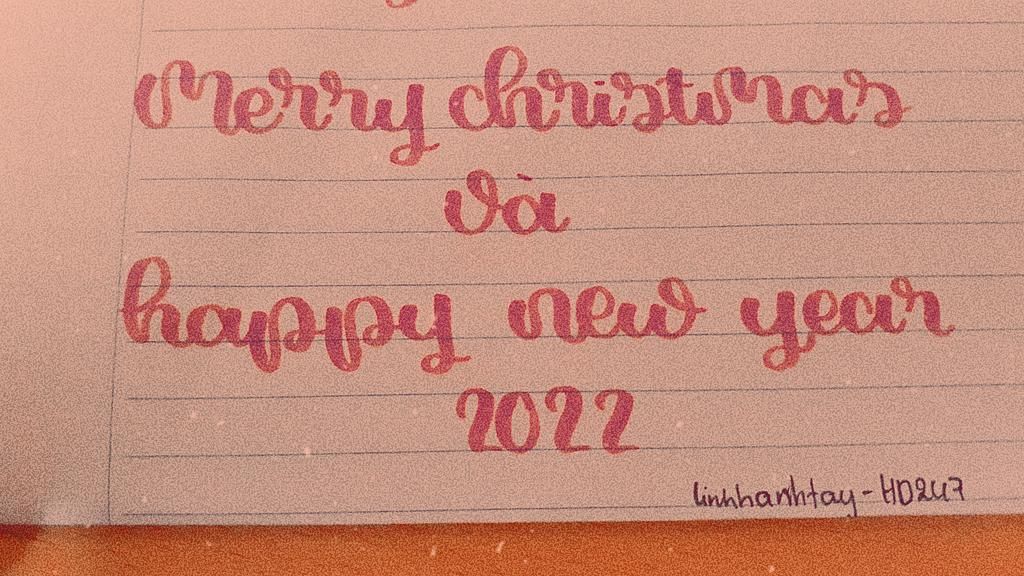 Merry christmas
và
happy new year
2022
linhhanhtay - HD247